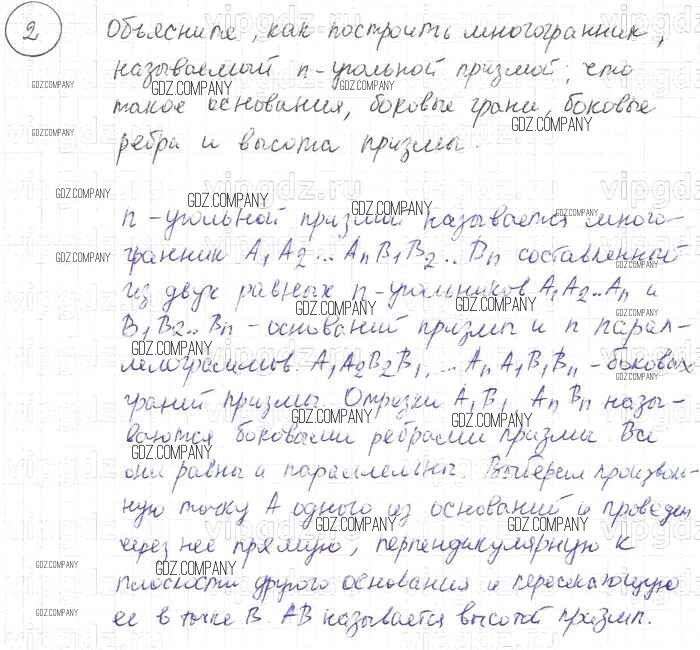 2
Объясните, как построить многогранник,
называемый n-угольной призмой; что
такое основания, боковые грани, боковые
ребра и высота призмы.
n-угольной призмой называется много-
гранник A₁A₂...AₙB₁B₂..Bₙ составленный
из двух равных n-угольников A₁A₂..Aₙ и
B₁B₂..Bₙ - оснований призмы и n парал-
лелограммов. A₁A₂B₂B₁, ... AₙA₁B₁Bₙ - боковых
граней призмы. Отрезки A₁B₁, AₙBₙ назы-
ваются боковыми ребрами призмы. Все
они равны и параллельны. Выберем произволь-
ную точку A одного из оснований и проведем
через нее прямую, перпендикулярную к
плоскости другого основания и пересекающую
ее в точке B. AB называется высотой призмы.
GDZ.COMPANY
vipgdz.ru